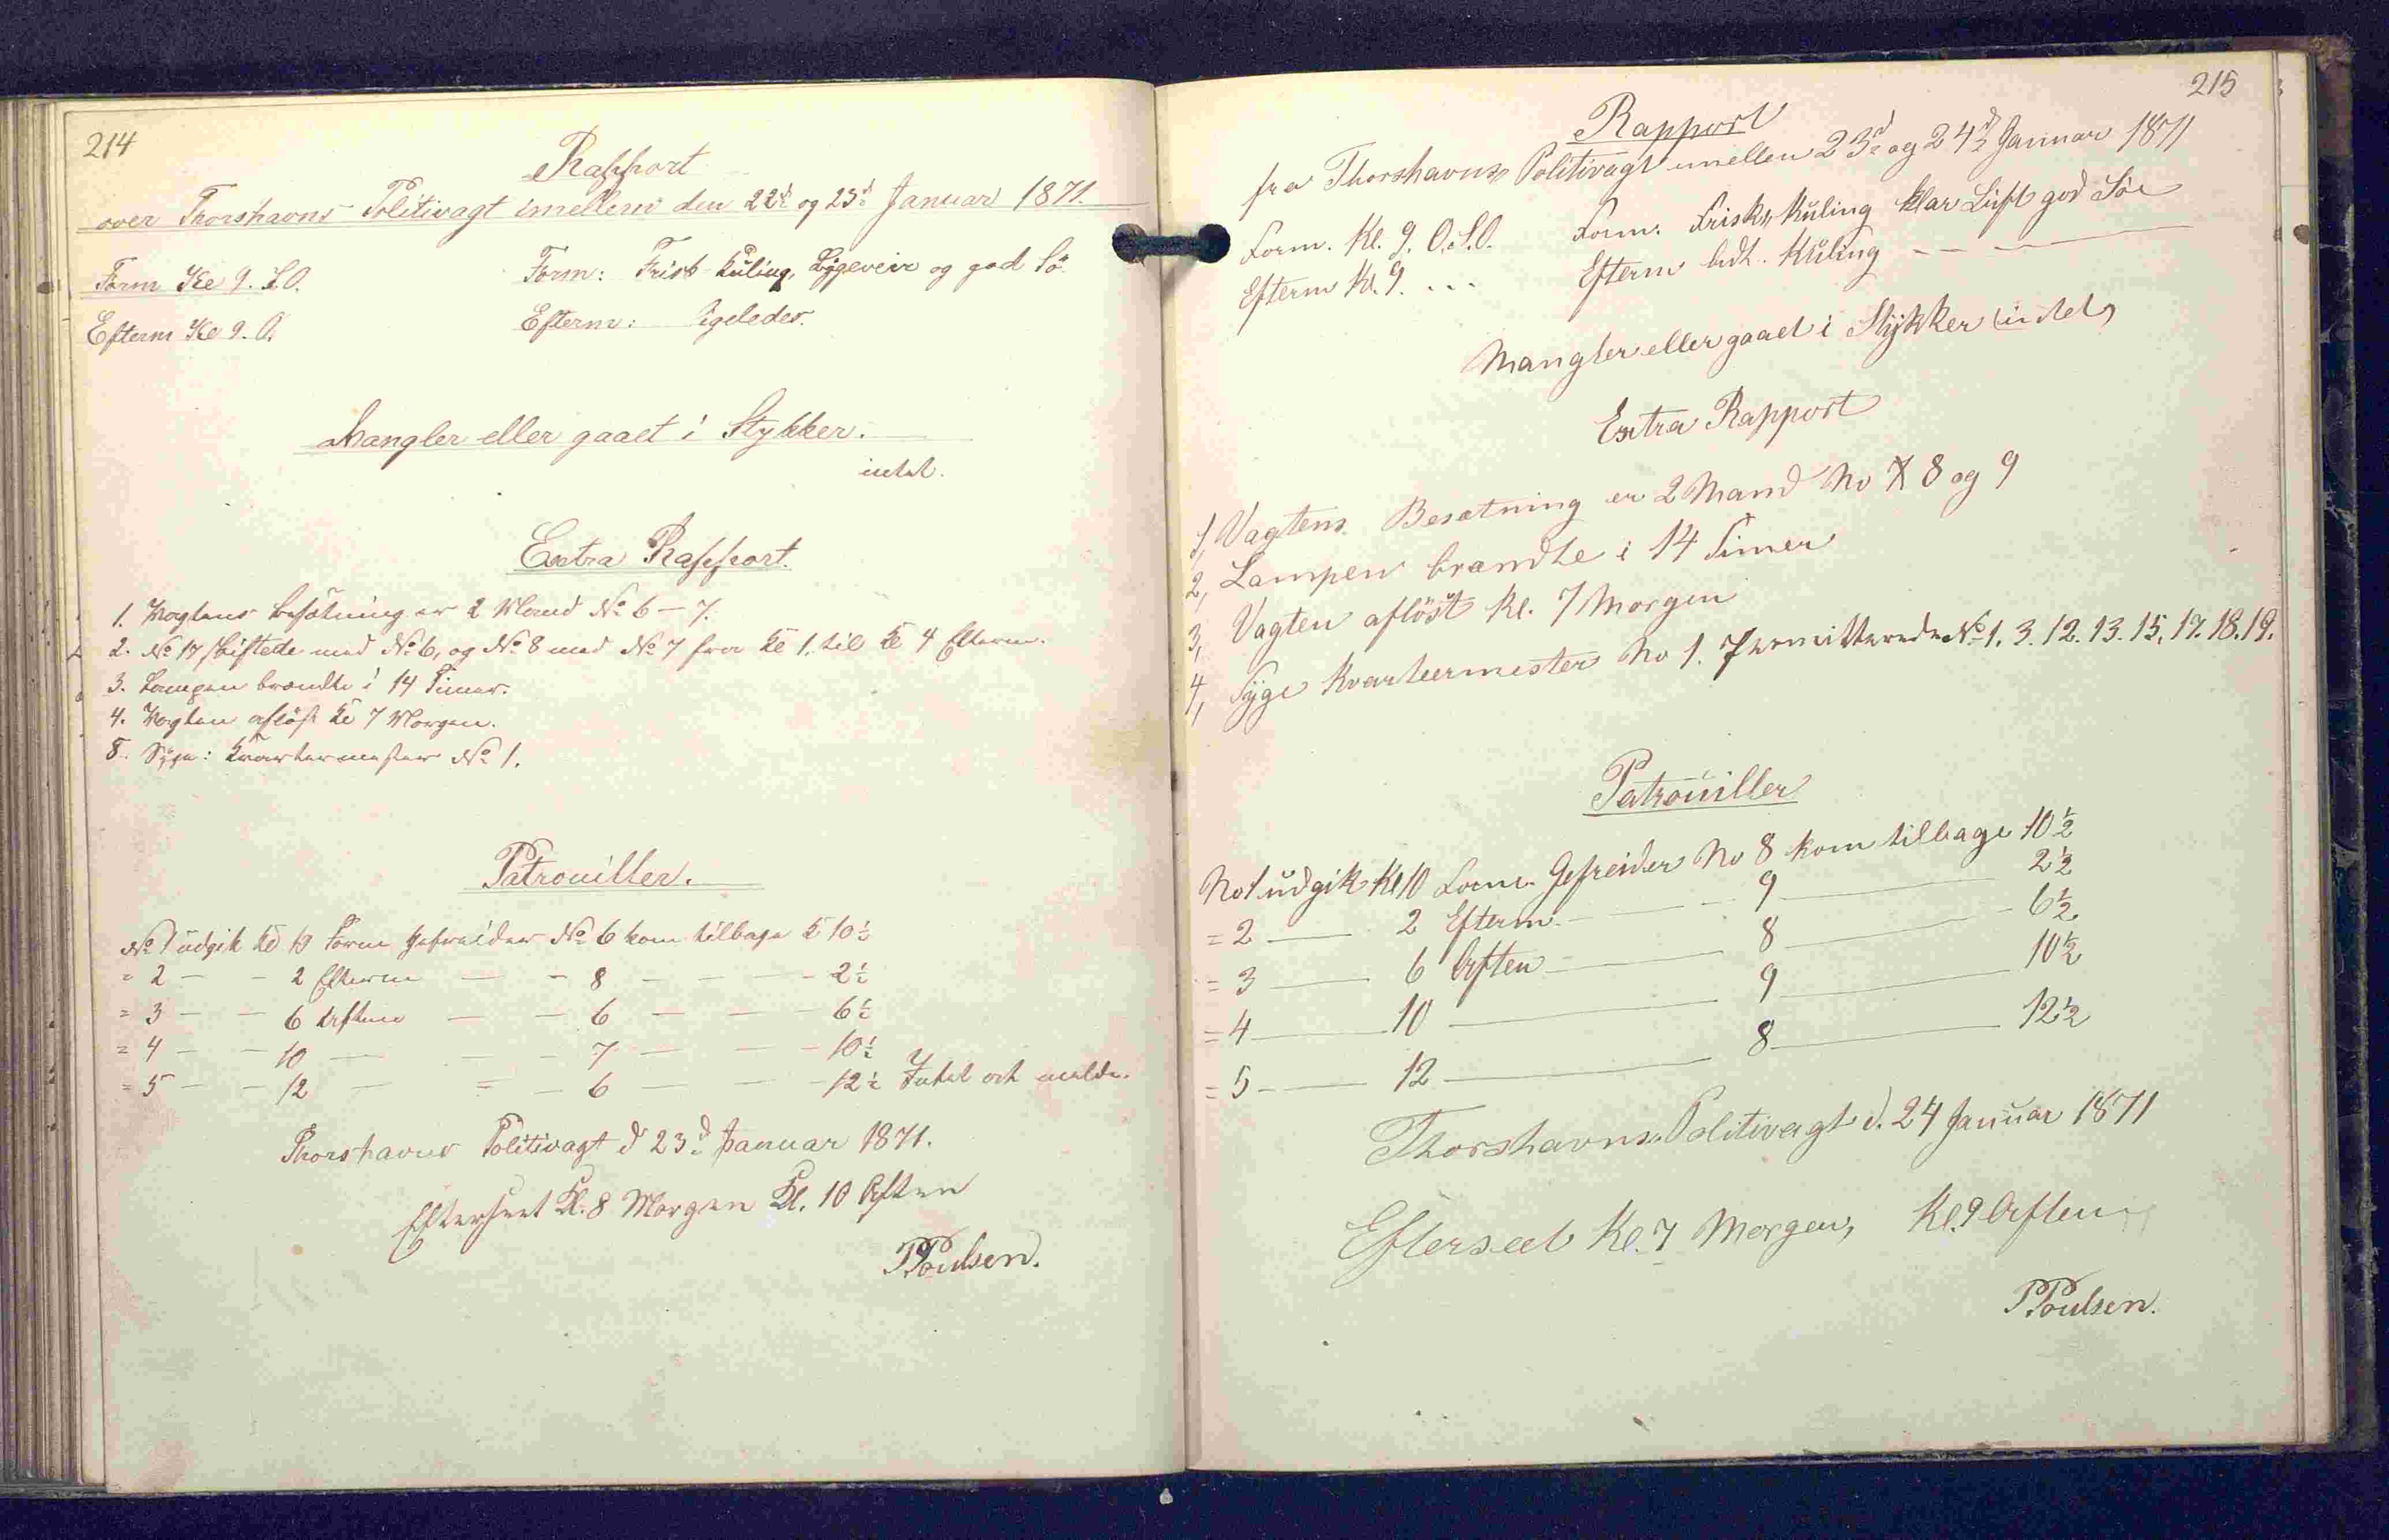 214
Rapport
over Thorshavns Politivagt imellem den 22d og 23d Januar 1871.
Form Kl 9. S.O. Form: Frisk Kuling, Bygeveir og god Sö.
Efterm Kl 9. O. Efterm: ligeledes.
Mangler eller gaaet i Stykker.
intet.
Extra Rapport.
1. Vagtens besætning er 2 Mand No 6 – 7.
2. No 17 skiftede med No 6, og No 8 med No 7 fra Kl 1. til Kl 4 Efterm.
3. Lampen brændte i 14 Timer.
4. Vagten aflöst Kl 7 Morgen.
5. Syge: Kvartermester No 1.
Patrouiller.
No 1 udgik Kl 10 Form Gefreider No 6 kom tilbage Kl 10½
= 2 — — 2 Efterm — — 8 — — — 2½
= 3 — — 6 Aften — — 6 — — — 6½
= 4 — — 10 — — — 7 — — — 10½
= 5 — — 12 — = — 6 — — — 12½ Intet at melde.
Thorshavns Politivagt d 23d Januar 1871.
Efterseet Kl. 8 Morgen Kl. 10 Aften
PPoulsen.
215
Rapport
fra Thorshavns Politivagt imellem 23d og 24d Januar 1871
Form. Kl. 9. O.S.O. Form. Frisk Kuling klar Luft god Söe
Efterm Kl. 9. ... Efterm lidt. Kuling — — ———
Mangler eller gaaet i Stykker intet
Extra Rapport
1, Vagtens Besætning er 2 Mand No 7 8 og 9
2, Lampen brændte i 14 Timer
3, Vagten aflöst Kl. 7 Morgen
4, Syge Kvarteermester No 1. Permitterede No 1. 3. 12. 13. 15. 17. 18. 19.
Patrouiller
No 1 udgik Kl 10 Form. Gefreider No 8 kom tilbage 10½
= 2 — 2 Efterm. — — — 9 — 2½
= 3 — 6 Aften — — 8 — 6½
= 4 — 10 — 9 — 10½
= 5 — 12 — 8 — 12½
Thorshavns Politivagt d. 24 Januar 1871
Efterseet Kl. 7 Morgen, Kl. 9 Aften
PPoulsen.